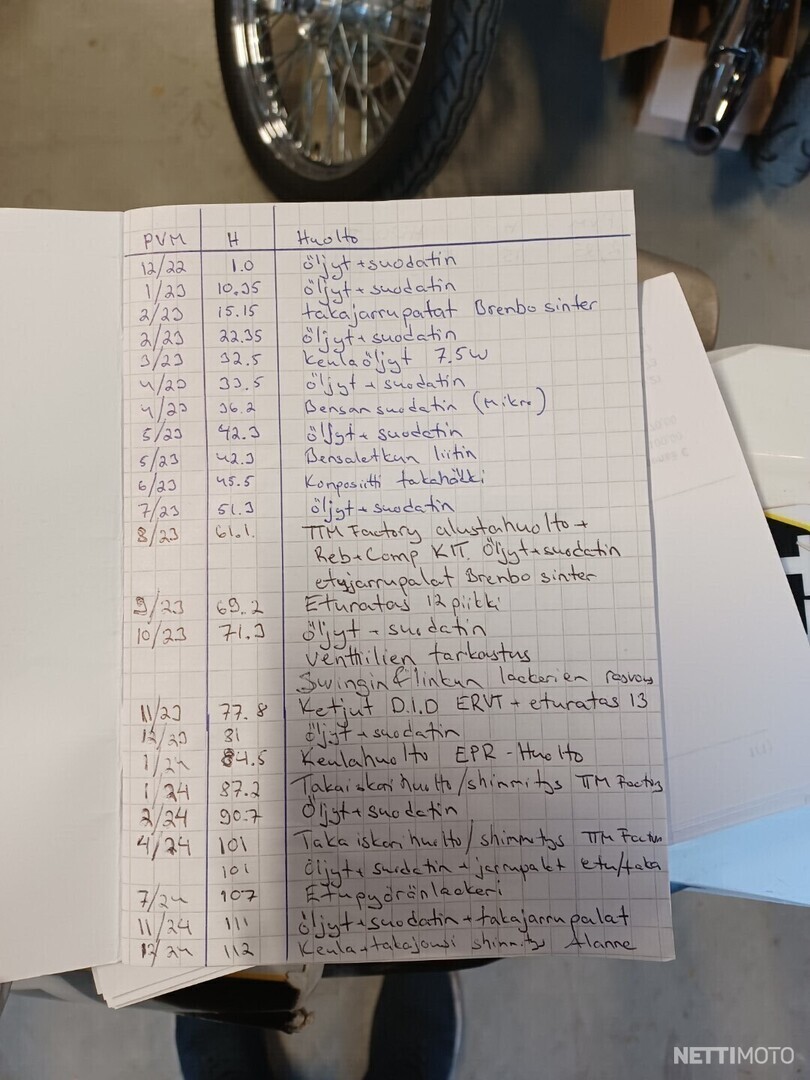 PVM H Huolto
12/22 1.0 öljyt + suodatin
1/23 10.35 öljyt + suodatin
2/23 15.15 takajarrupatat Brenbo sinter
2/23 22.35 öljyt + suodatin
3/23 32.5 keulaöljyt 7.5w
4/23 33.5 öljyt + suodatin
4/23 36.2 Bensansuodatin (Mikro)
5/23 42.3 öljyt + suodatin
5/23 42.3 Bensaletkun liitin
6/23 45.5 Konposiitti takahäkki
7/23 51.3 öljyt + suodatin
8/23 61.1. TTM Factory alustahuolto +
Reb+Comp KIT. Öljyt+suodatin
etujarrupalat Brenbo sinter
9/23 69.2 Eturatas 12 piikki
10/23 71.3 öljyt - suodatin
Venttiilien tarkastus
Swingin & linkun laakerien rasvaus
11/23 77.8 Ketjut D.I.D ERVT + eturatas 13
12/23 81 öljyt + suodatin
1/24 84.5 Keulahuolto EPR - Huolto
1/24 87.2 Takaiskarihuolto/shimmitys TTM Factory
2/24 90.7 Öljyt + suodatin
4/24 101 Takaiskarihuolto/shimmitys TTM Factory
101 Öljyt + suodatin + jarrupalat etu/taka
7/24 107 Etupyöränlaakeri
11/24 111 öljyt+suodatin+takajarrupalat
12/24 112 Keula+takajousi shimmitys Alanne
NETTIMOTO